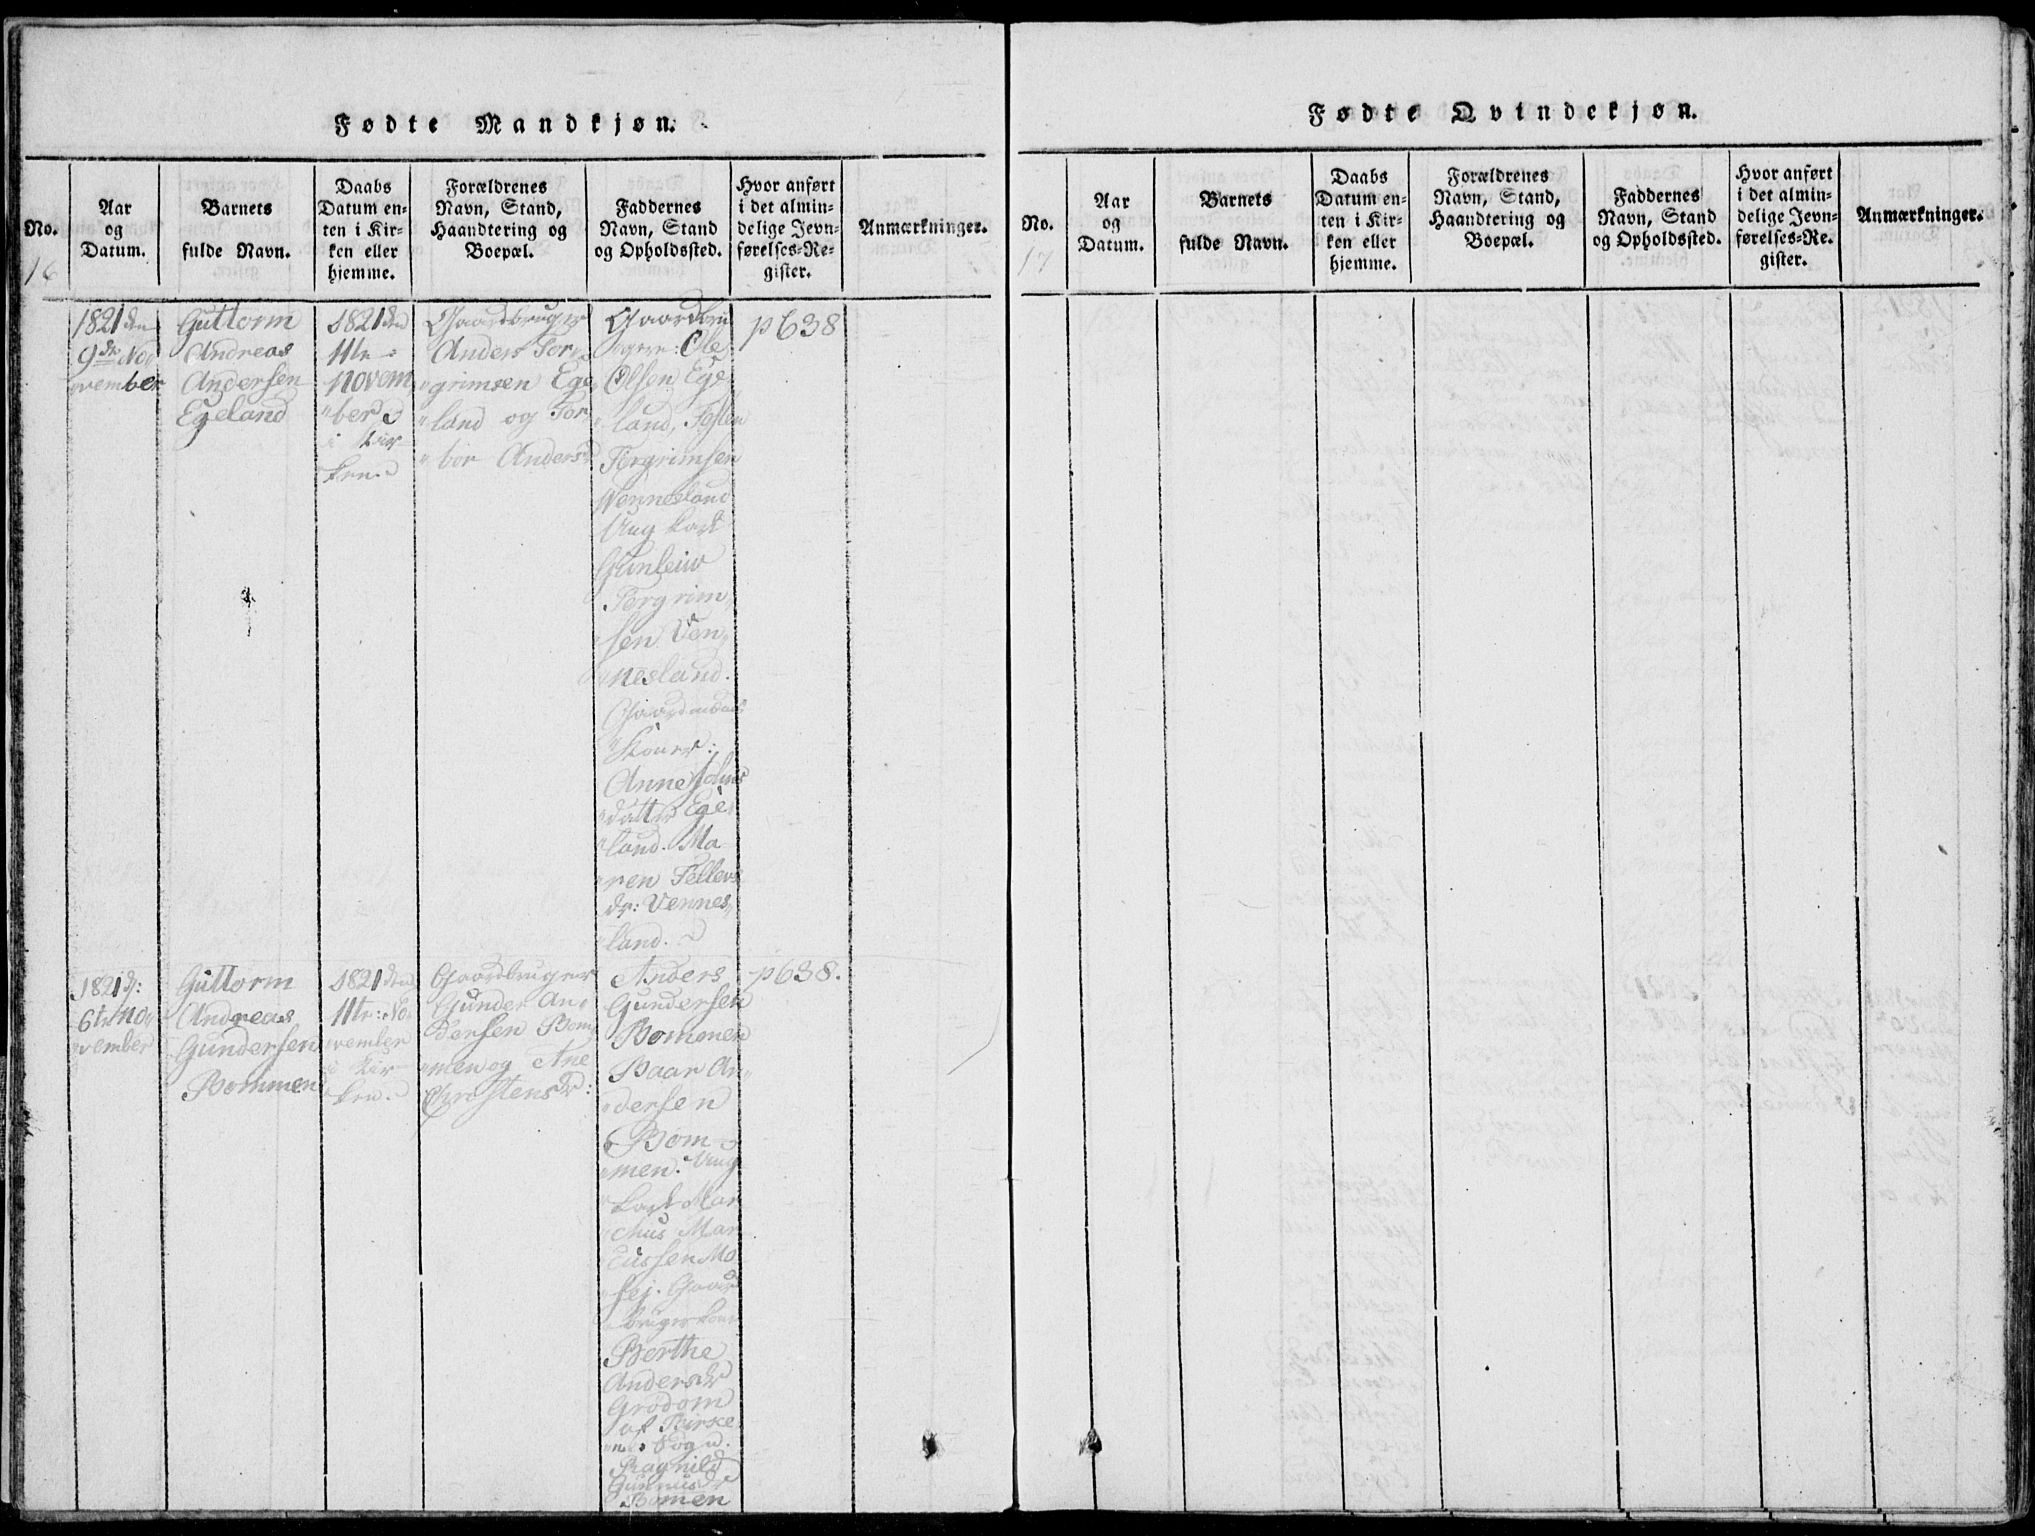 Fødte Mandkjøn.
No.
16
Aar
og
Datum.
Barnets
fulde Navn.
Daabs
Datum en-
ten i Kir-
ken eller
hjemme.
Forældrenes
Navn, Stand,
Haandtering og
Boepæl.
Faddernes
Navn, Stand
og Opholdssted.
Hvor anført
i det almin-
delige Jevn-
førelses-Re-
gister.
Anmærkninger.
1821 den
9de No,,
,,vember
Guttorm
Andreas
Andersen
Egeland
1821 den
11te
novem,,
,,ber
i Kir
ken.
Gaardbruger
Anders Tor,,
,,grimsen Ege,,
,,land og Tor,,
,,bor Andersdr
Ole
Olsen Ege,,
,,land,
Torgrimsen
Vennesland
Ung karl
Gunleiw
Torgrim,,
,,sen Ven,,
,,nesland.
Gaardmænds
koner:
Anne Johns
datter Ege,,
,,land. Ma
,,ren Tellevs
dr: Vennes,,
,,land.
p 638
1821 d:
6te No,,
,,vember
Guttorm
Andreas
Gundersen
Bommen
1821 den
11te No,,
,,vember
i Kir
ken.
Gaardbruger
Gunder An,,
dersen Bom,,
,,men og Ane
Christensdr:
Anders
Gundersen
Bommen
Baar An,,
,,dersen
Bom
,,men. Ung
karl Mar
Mar
Gaard
brugerkoner
Berthe
Andersdr
Grødom
af Birke
Sogn.
Ragnild
Gunnusdr
Bomen
p 638.
Fødte Qvindekjøn.
No.
17
Aar
og
Datum.
Barnets
fulde Navn.
Daabs
Datum en-
ten i Kir-
ken eller
hjemme.
Forældrenes
Navn, Stand,
Haandtering og
Boepæl.
Faddernes
Navn, Stand
og Opholdssted.
Hvor anført
i det almin-
delige Jevn-
førelses-Re-
gister.
Anmærkninger.